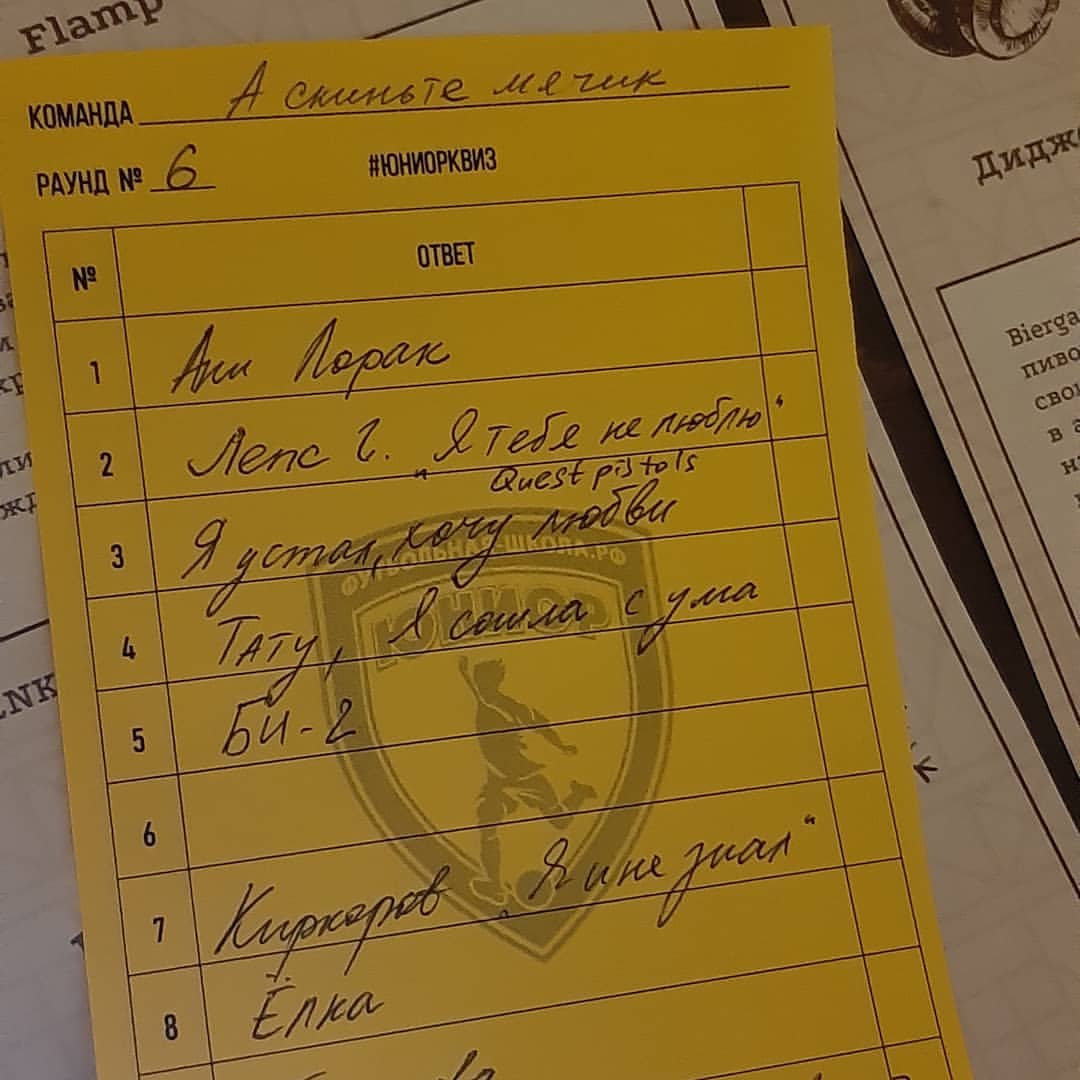 Flamp
КОМАНДА А скиньте мячик
РАУНД № 6 #ЮНИОРКВИЗ
№ ОТВЕТ
1 Ани Лорак
2 Лепс Г. „Я тебя не люблю“
Quest pistols
3 Я устал, хочу любви
4 Тату, Я сошла с ума
5 БИ-2
6
7 Киркоров „Я и не знал“
8 Ёлка
ФУТБОЛЬНАЯ-ШКОЛА.РФ
ЮНИОР
Диджо
Bierga
пиво
сво
в а